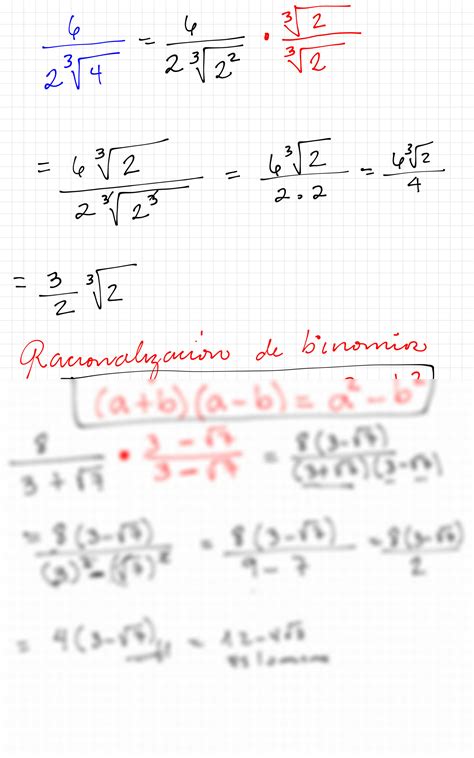 6/(2∛4) = 6/(2∛2²) • ∛2/∛2
= 6∛2/(2∛2³) = 6∛2/(2•2) = 6∛2/4
= 3/2 ∛2
Racionalización de binomios
(a+b)(a-b) = a² - b²
8/(3+√7) • (3-√7)/(3-√7) = 8(3-√7)/((3+√7)(3-√7))
= 8(3-√7)/((3)²-(√7)²) = 8(3-√7)/(9-7) = 8(3-√7)/2
= 4(3-√7) = 12-4√7